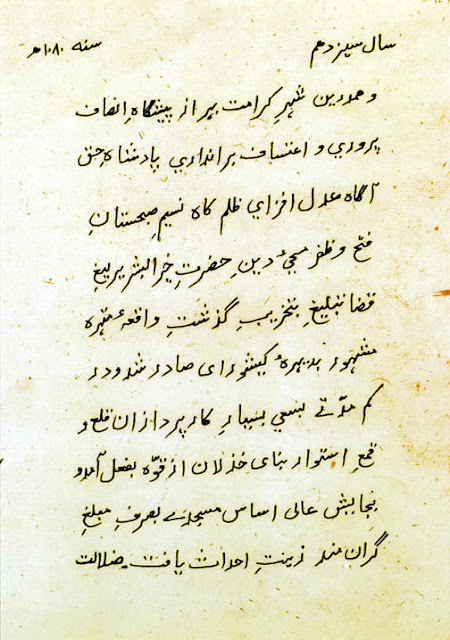 سال سیزدهم سنه ۱۰۸۰ھ
و همدرین شهرِ کرامت بهر از پیشگاهِ انصاف
پروري و اعتساف براندازي پادشاهِ حق
آگاه معدل افزاي ظلم کاه نسیمِ صبحستانِ
فتح و ظفر محئِ دینِ حضرتِ خیر البشر یرلیغِ
قضا تبلیغِ بتخریبِ گذشتِ واقعهٔ متهره
مشهور بدیهرهٔ کیشو رای صادر شد و در
کم مدّتے بسعيِ بسیارِ کارپردازان قلع و
قمعِ استوار بنای خذلان از قوّه بفعل آمد و
بجایش عالی اساس مسجدے بصرفِ مبلغِ
گران مند زینتِ احداث یافت ضلالت